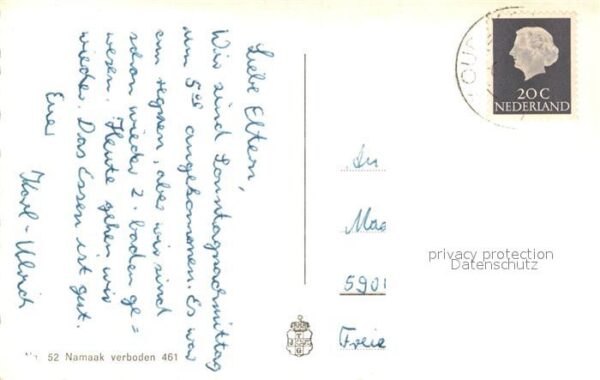 Liebe Eltern,
Wir sind Sonntagnachmittag
um 5 angekommen. Es war
am regnen, aber wir sind
schon wieder 2. baden ge=
wesen. Heute gehen wir
wieder. Das Essen ist gut.
Euer
Karl-Ulrich
20 C
NEDERLAND
An
5901
Freie
privacy protection
Datenschutz
52 Namaak verboden 461